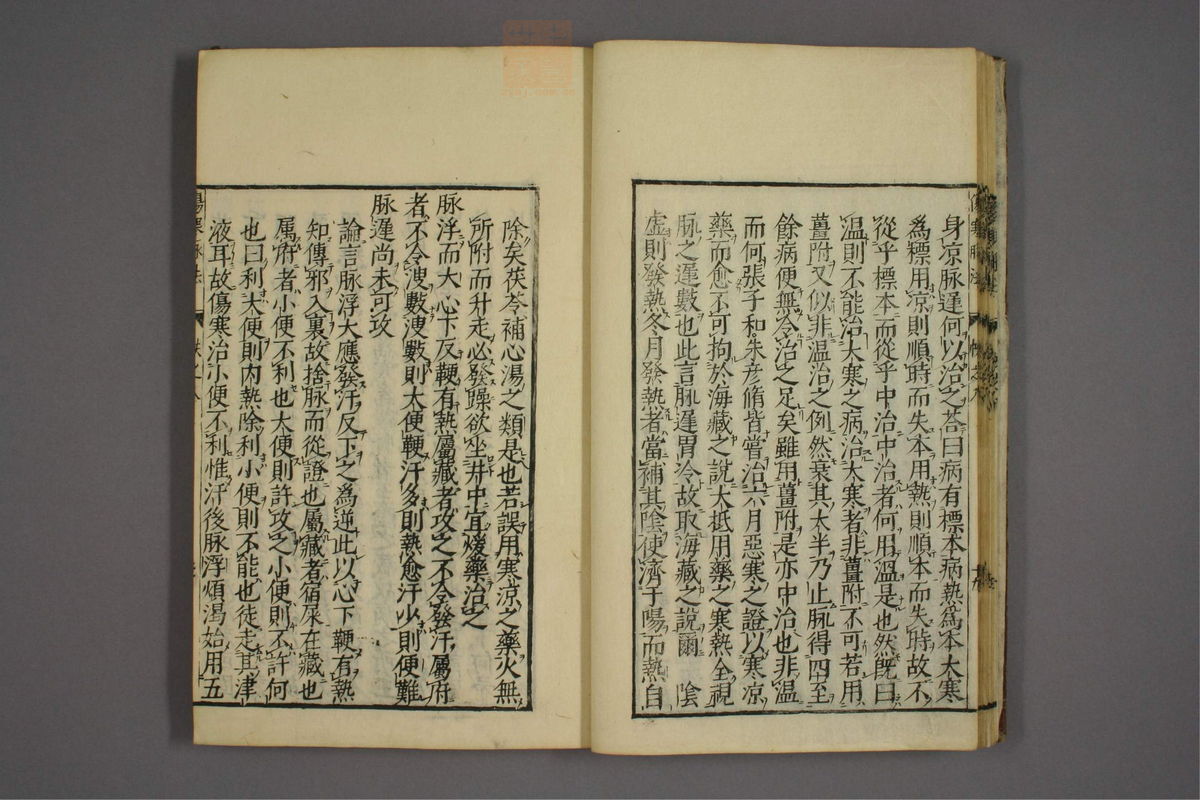 身凉脉遲何以治之荅曰病有標本病熱爲本大寒
爲標用凉則順時而失本用熱則順本而失時故不
從乎標本而從乎中治中治者何用溫是也然旣曰
溫則不能治大寒之病治大寒者非薑附不可若用
薑附又似非溫治之例然衰其太半乃止脉得四至
餘病便無令治之足矣雖用薑附是亦中治也非溫
而何張子和朱彦脩皆嘗治六月惡寒之證以寒凉
藥而愈不可拘於海藏之說大抵用藥之寒熱全視
脉之遲數也此言脉遲胃冷故取海藏之說爾　陰
虛則發熱冬月發熱者當補其陰使濟于陽而熱自
除矣茯苓補心湯之類是也若誤用寒涼之藥火無
所附而升走必發躁欲坐井中宜煖藥治之
脉浮而大心下反鞕有熱屬藏者攻之不令發汗屬府
者不令溲數溲數則大便鞕汗多則熱愈汗少則便難
脉遲尚未可攻
論言脉浮大應發汗反下之爲逆此以心下鞕有熱
知傳邪入裏故捨脉而從證也屬藏者宿尿在藏也
属府者小便不利也大便則許攻之小便則不許何
也曰利大便則内熱除利小便則不能也徒走其津
液耳故傷寒治小便不利惟汗後脉浮煩渴始用五